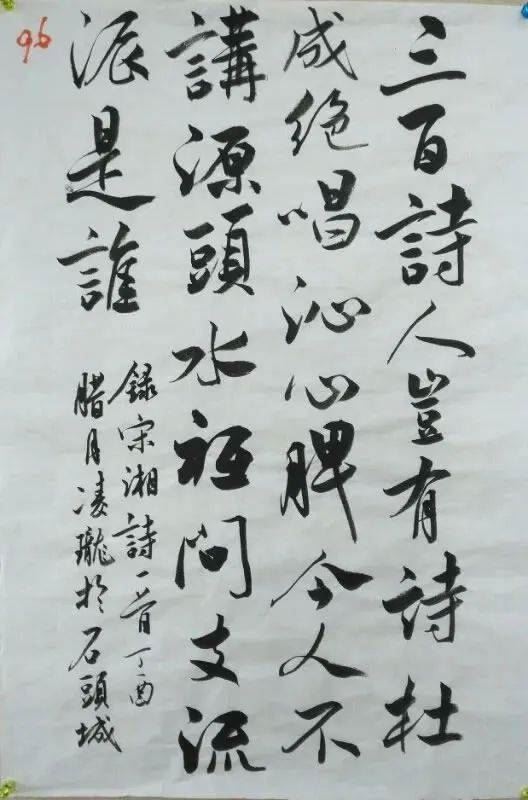 96
三百詩人豈有詩杜
成絶唱沁心脾今人不
講源頭水祗問支流
派是誰
録宋湘詩一首丁酉
腊月凌瓏於石頭城